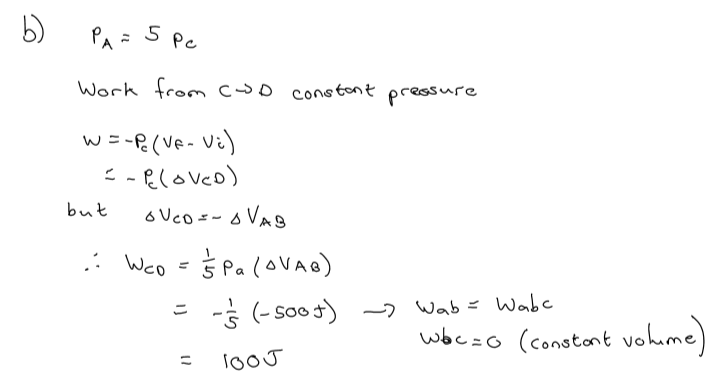 b) P_A = 5 P_C
Work from C→D constant pressure
W = -P_C (V_F - V_i)
= - P_C (ΔV_CD)
but ΔV_CD = - ΔV_AB
∴ W_CD = 1/5 P_a (ΔV_AB)
= -1/5 (-500J) → W_ab = W_abc
= 100J W_bc = 0 (constant volume)